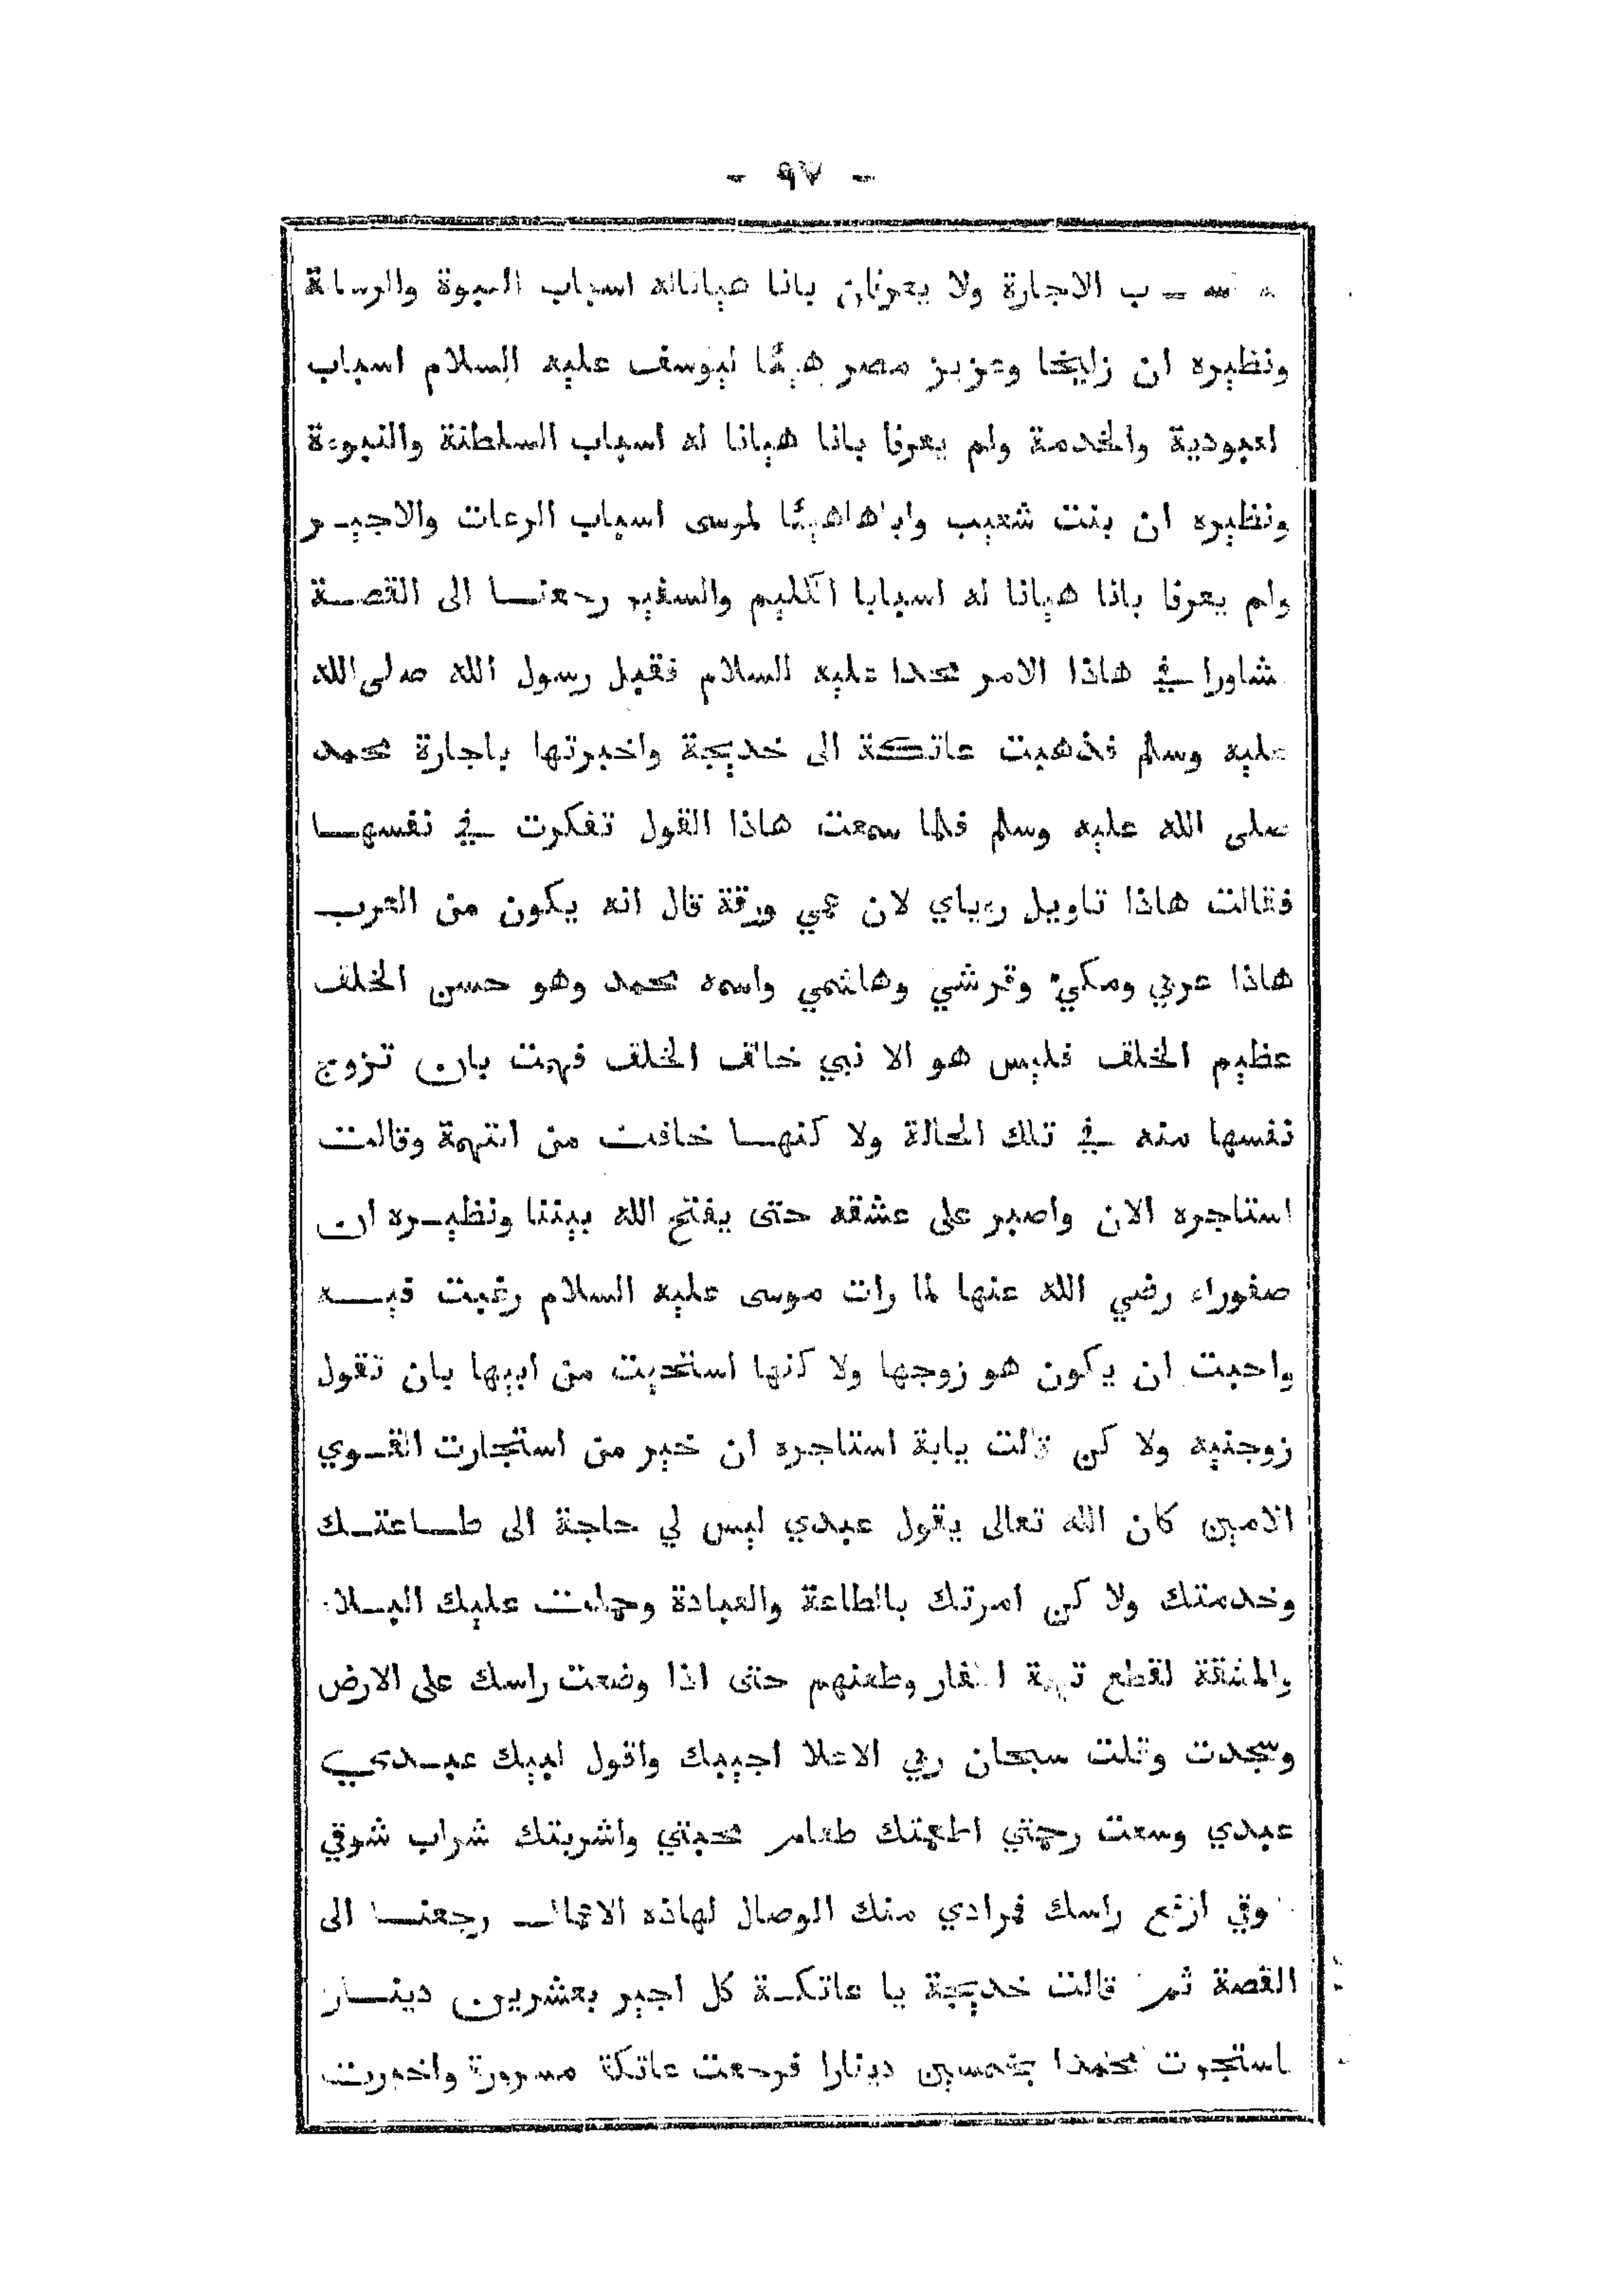 - ٩٧ -
الاجارة ولا يعرفان بانا هيانا له اسباب النبوة والرسالة
ونظيره ان زليخا وعزيز مصر هيئا ليوسف عليه السلام اسباب
لعبودية والخدمة ولم يعرفا بانا هيانا له اسباب السلطنة والنبوءة
ونظيره ان بنت شعيب واباها هيئا لموسى اسباب الرعات والاجيـر
ولم يعرفا بانا هيانا له اسبابا الكليم والسفير رجعنـا الى القصـة
شاورا في هاذا الامر محمدا عليه السلام فقبل رسول الله صلى الله
عليه وسلم فذهبت عاتكة الى خديجة واخبرتها باجارة محمد
صلى الله عليه وسلم فلما سمعت هاذا القول تفكرت في نفسهـا
فقالت هاذا تاويل رءياي لان عمي ورقة قال انه يكون من العرب
هاذا عربي ومكي وقرشي وهاشمي واسمه محمد وهو حسن الخلق
عظيم الخلق فليس هو الا نبي خالق الخلق فهمت بان تزوج
نفسها منه في تلك الحالة ولا كنهـا خافت من التهمة وقالت
استاجره الان واصبر على عشقه حتى يفتح الله بيننا ونظيـره ان
صفوراء رضي الله عنها لما رات موسى عليه السلام رغبت فيـه
واحبت ان يكون هو زوجها ولا كنها استحيت من ابيها بان تقول
زوجنيه ولا كن قالت يابة استاجره ان خير من استجارت القـوي
الامين كان الله تعالى يقول عبدي ليس لي حاجة الى طـاعتـك
وخدمتك ولا كن امرتك بالطاعة والعبادة وحملت عليك البـلاء
والمشقة لقطع تهمة الكفار وطعنهم حتى اذا وضعت راسك على الارض
وسجدت وقلت سبحان ربي الاعلا اجيبك واقول لبيك عبـدي
عبدي وسعت رحمتي اطعمتك طعام محبتي واشربتك شراب شوقي
وقي ارفع راسك فمرادي منك الوصال لهاذه الاعمال رجعنـا الى
القصة ثم قالت خديجة يا عاتكـة كل اجير بعشرين دينـار
استجرت محمدا بخمسين دينارا فرجعت عاتكة مسرورة واخبرت